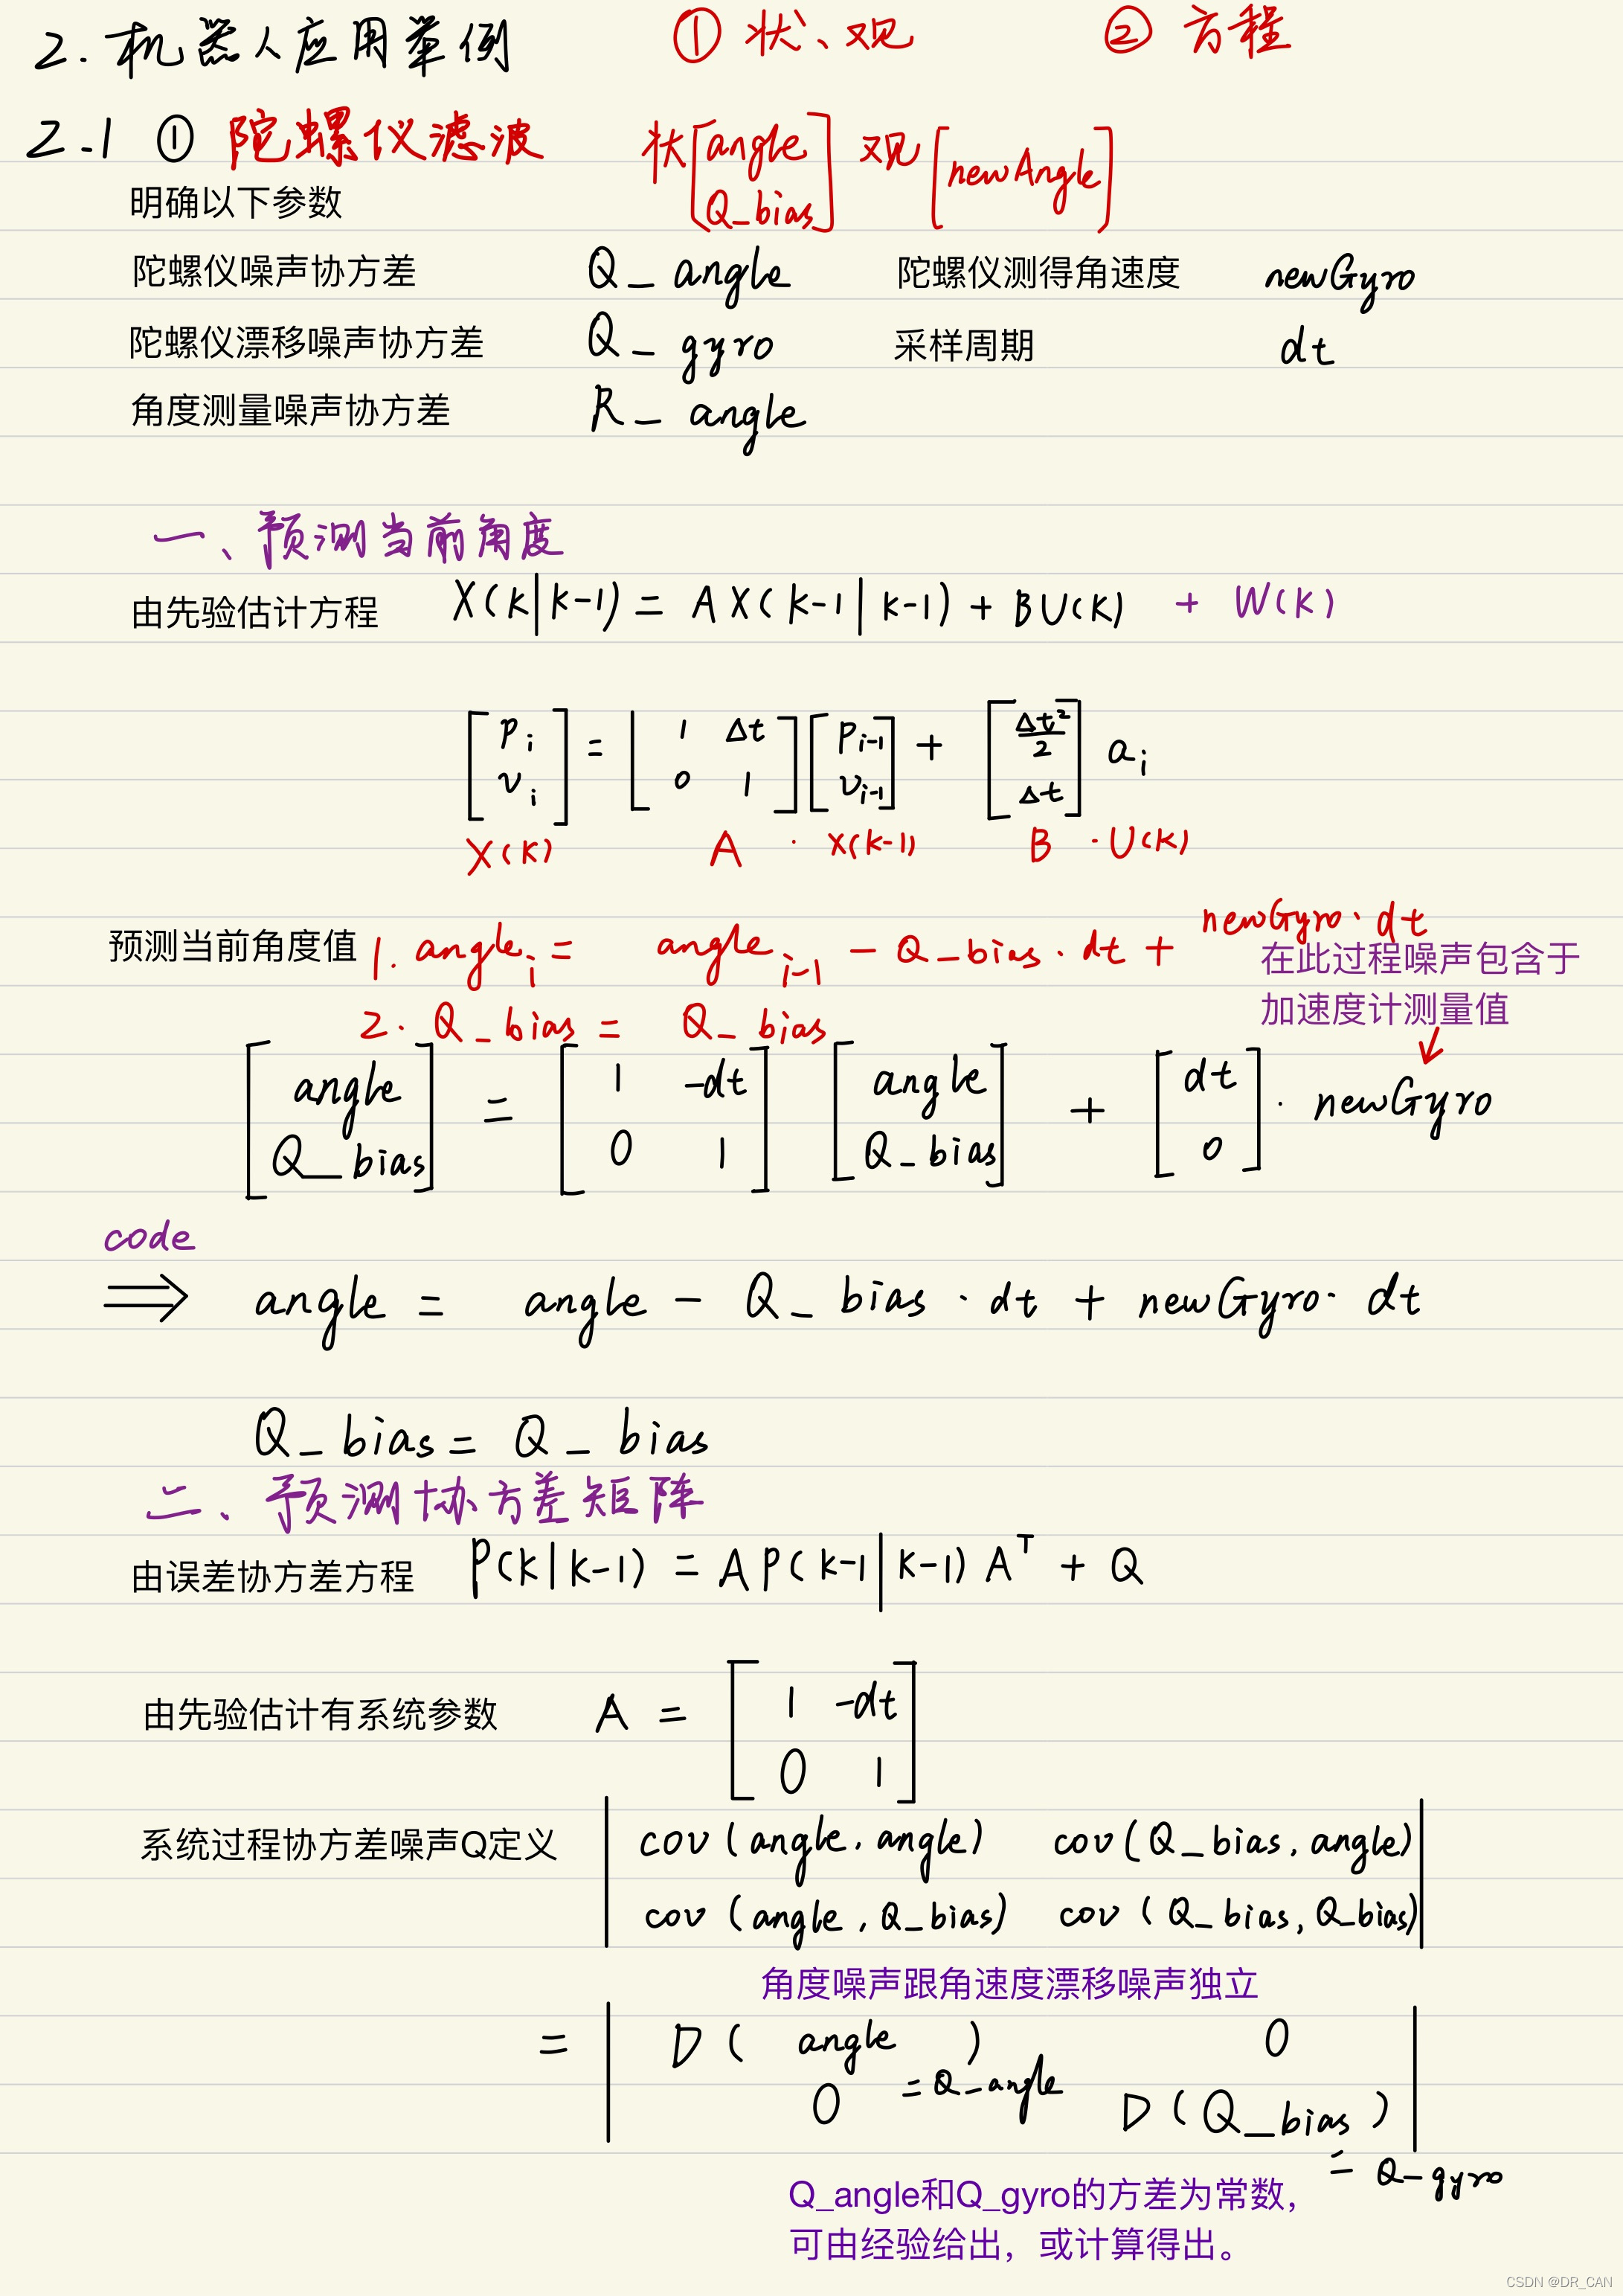 2. 机器人应用举例 ① 状、观 ② 方程
2.1 ① 陀螺仪滤波 状[angle Q_bias] 观[newAngle]
明确以下参数
陀螺仪噪声协方差 Q_angle 陀螺仪测得角速度 newGyro
陀螺仪漂移噪声协方差 Q_gyro 采样周期 dt
角度测量噪声协方差 R_angle
一、预测当前角度
由先验估计方程 X(k|k-1) = AX(k-1|k-1) + BU(k) + W(k)
[p_i v_i] = [1 Δt 0 1][p_{i-1} v_{i-1}] + [Δt²/2 Δt] a_i
X(k) A · X(k-1) B · U(k)
预测当前角度值 1. angle_i = angle_{i-1} - Q_bias · dt + newGyro · dt
在此过程噪声包含于
加速度计测量值
2. Q_bias = Q_bias
[angle Q_bias] = [1 -dt 0 1] [angle Q_bias] + [dt 0] · newGyro
code
⇒ angle = angle - Q_bias · dt + newGyro · dt
Q_bias = Q_bias
二、预测协方差矩阵
由误差协方差方程 P(k|k-1) = AP(k-1|k-1)A^T + Q
由先验估计有系统参数 A = [1 -dt 0 1]
系统过程协方差噪声Q定义 | cov(angle, angle) cov(Q_bias, angle) |
| cov(angle, Q_bias) cov(Q_bias, Q_bias) |
角度噪声跟角速度漂移噪声独立
= | D(angle) 0 |
= Q_angle
| 0 D(Q_bias) |
= Q_gyro
Q_angle和Q_gyro的方差为常数，
可由经验给出，或计算得出。
CSDN @DR_CAN